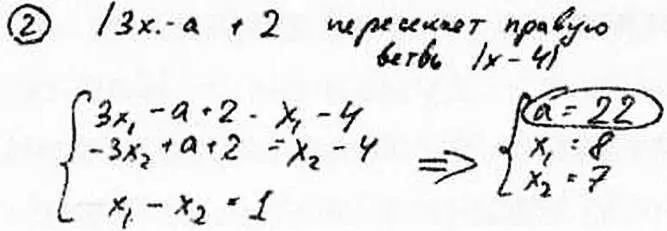 ② |3x - a + 2 пересекает правую
ветвь |x - 4|
3x₁ - a + 2 - x₁ - 4
-3x₂ + a + 2 = x₂ - 4
x₁ - x₂ = 1
=>
a = 22
x₁ = 8
x₂ = 7